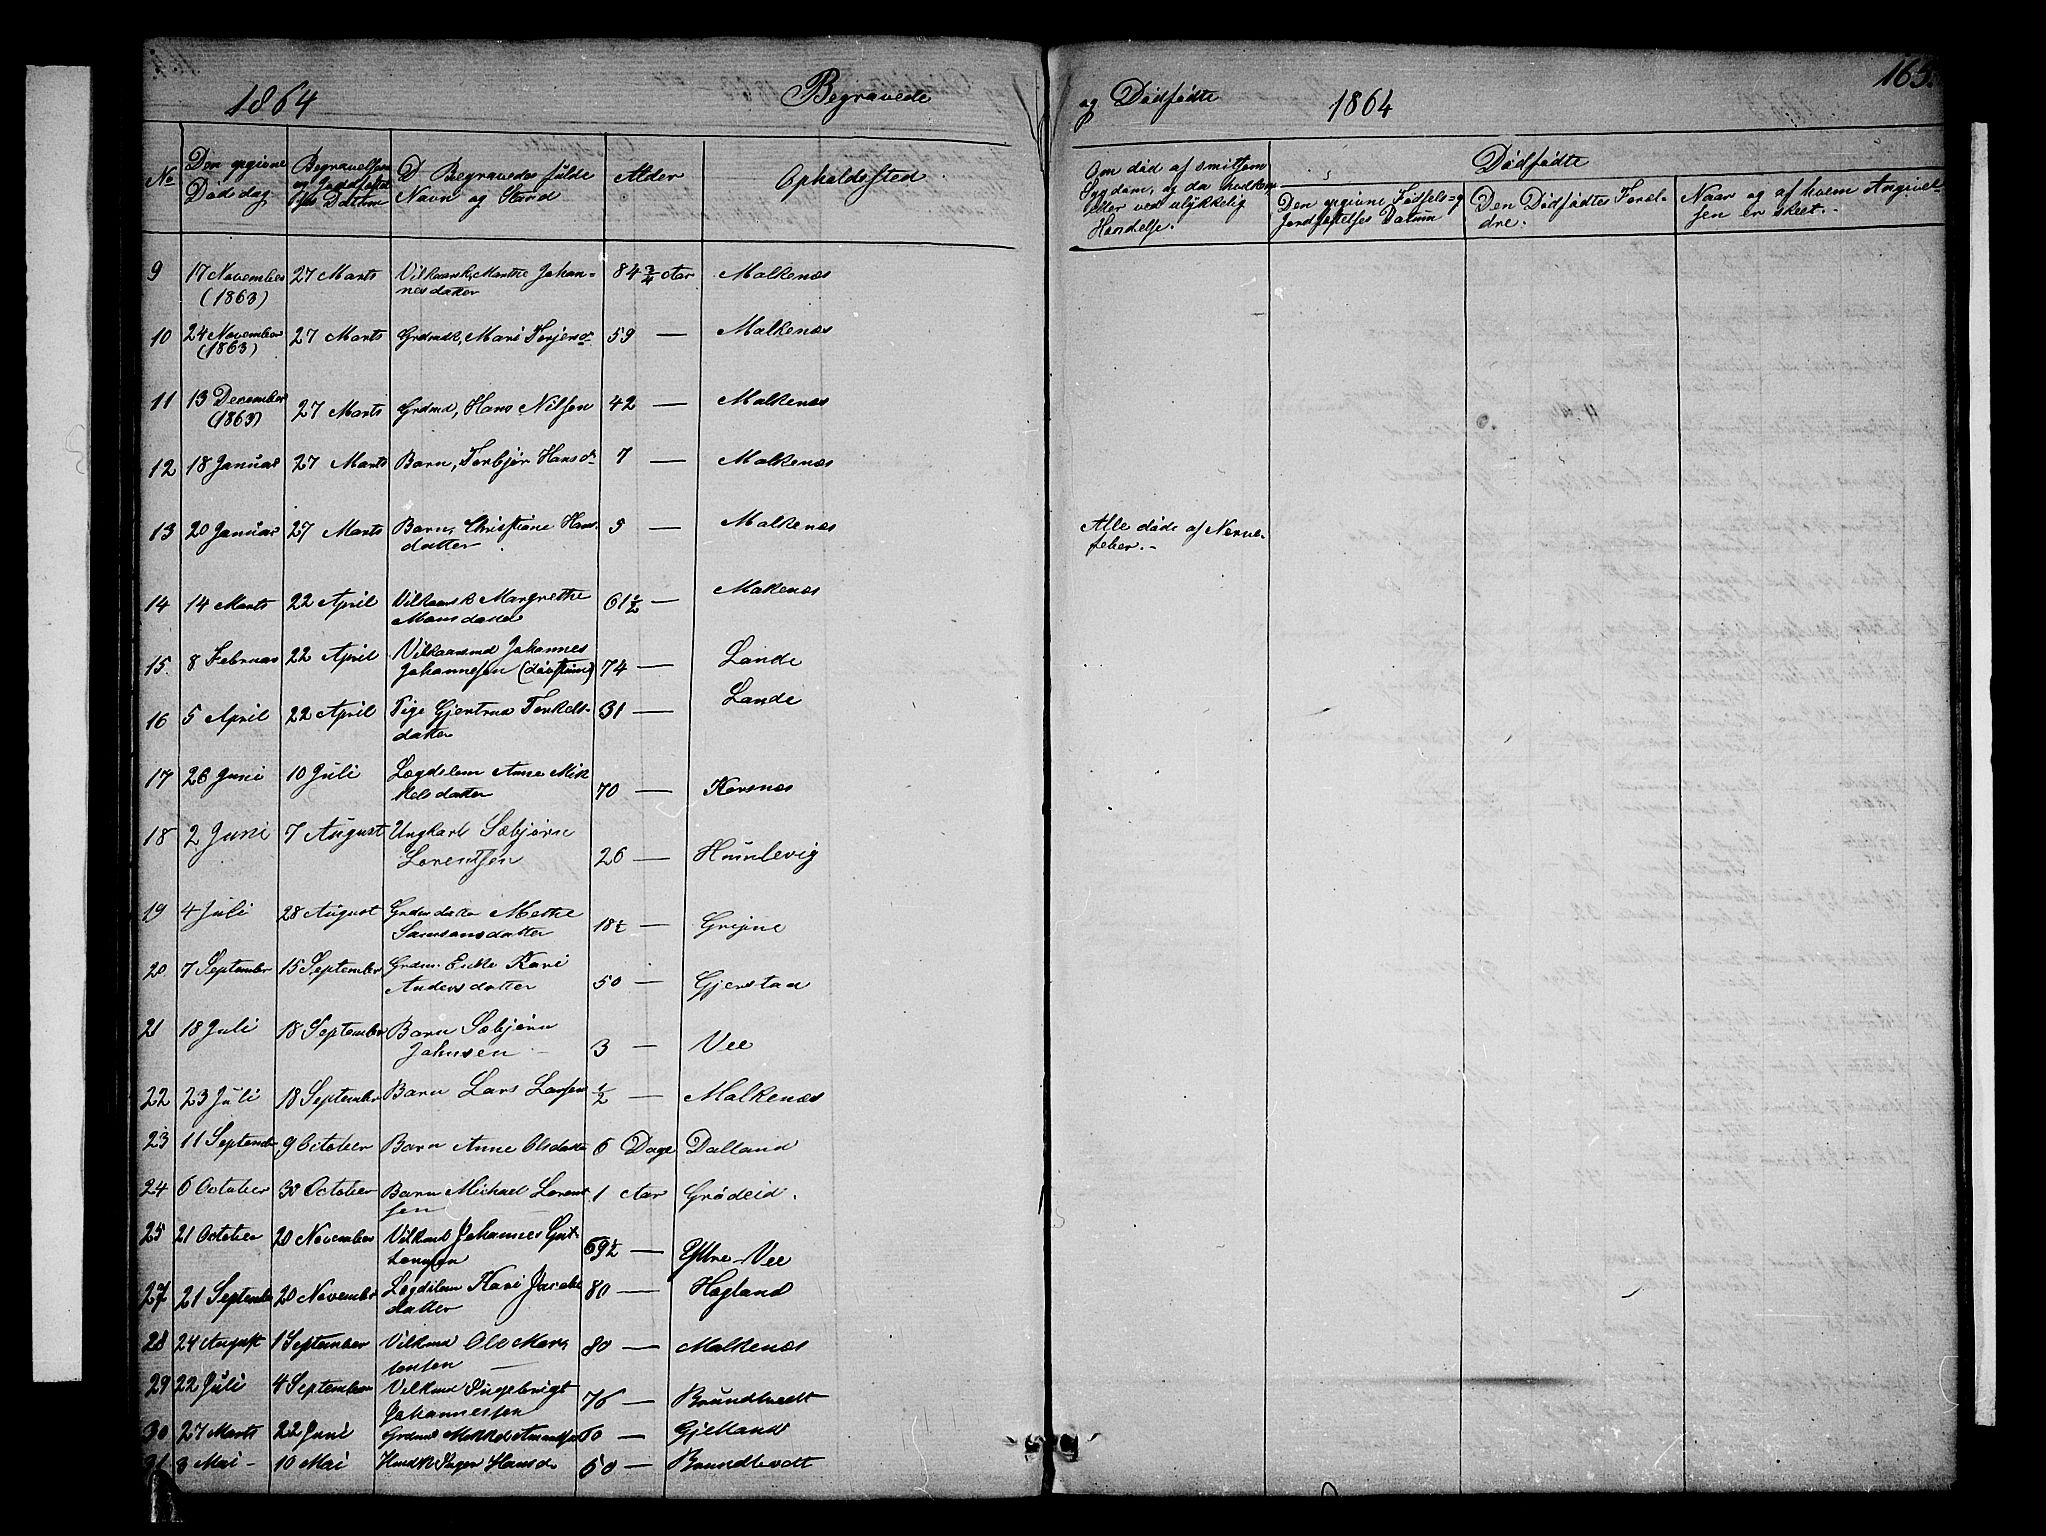 1864 Begravede
og Dødfødte 1864 165.
No
Den opgivne Døds dag
Begravelsens og Jordfæstelses Datum
D Begravedes fulde Navn og Stand
Alder
Opholdssted
Om død af smitsom Sygdom, og da hvilken eller ved ulykkelig Hændelse.
Dødfødte
Den opgivne Fødsels- og Jordfæstelses Datum
Den Dødfødtes Foreldre.
Naar og af hvem Angivelsen er skeet.
9 17 November (1863) 27 Marts Vilkaarsk, Marthe Johannesdatter 84 3/4 Aar Malkenæs
10 24 November (1863) 27 Marts Grdmdk, Mari Terjesd 59 — Malkenæs
11 13 December (1863) 27 Marts Grdmd, Hans Nilsen 42 — Malkenæs
12 18 Januar 27 Marts Barn, Torbjør Hansd 7 — Malkenæs
13 20 Januar 27 Marts Barn, Christiane Hansdatter 5 — Malkenæs
Alle døde af Nervefeber.-
14 14 Marts 22 April Vilkaarsk Margrethe Monsdatter 61 1/2 — Makenæs
15. 8 Februar 22 April Vilkaarsmd Johannes Johannesen (døvstum) 74 — Lande
16 5 April 22 April Pige Gjertrud Torkelsdatter 31 — Lande
17 26 Juni 10 Juli Lægdslem Anne Mikkelsdatter 70 — Korsnæs
18 2 Juni 7 August Ungkarl Sæbjørn Lorentsen 26 — Humlevig
19 4 Juli 28 August Grdmdatter Methe Samsonsdatter 18 1/2 — Grijne
20 7 September 15 September Grdm. Enke Kari Andersdatter 50 — Gjerstad
21 18 Juli 18 September Barn Sæbjørn Johnsen 3 — Vee
22 23 Juli 18 September Barn Lars Larsen 1/2 — Malkenæs
23 11 September 9 October Barn Anne Olsdatter 6 Dage Dalland
24 6 October 30 October Barn Michael Lorentsen 1 Aar Grødeid.
25 21 October 20 November Vilkmd Johannes 69 1/2 — Ystre-Vee
27 21 September 20 November Lægdslem Kari Jacobsdatter 80 — Hogland
28 24 August 1 September Vilkmd Ole 80 — Malkenæs
29 22 Juli 4 September Vilkmd Ingebrigt Johannessen 76 — Brundtvedt
30 27 Marts 22 Juni Grdmd Mikkel 60 — Gjelland
31 3 Mai - 10 Mai Inger Hansd 50 — Brundtvedt